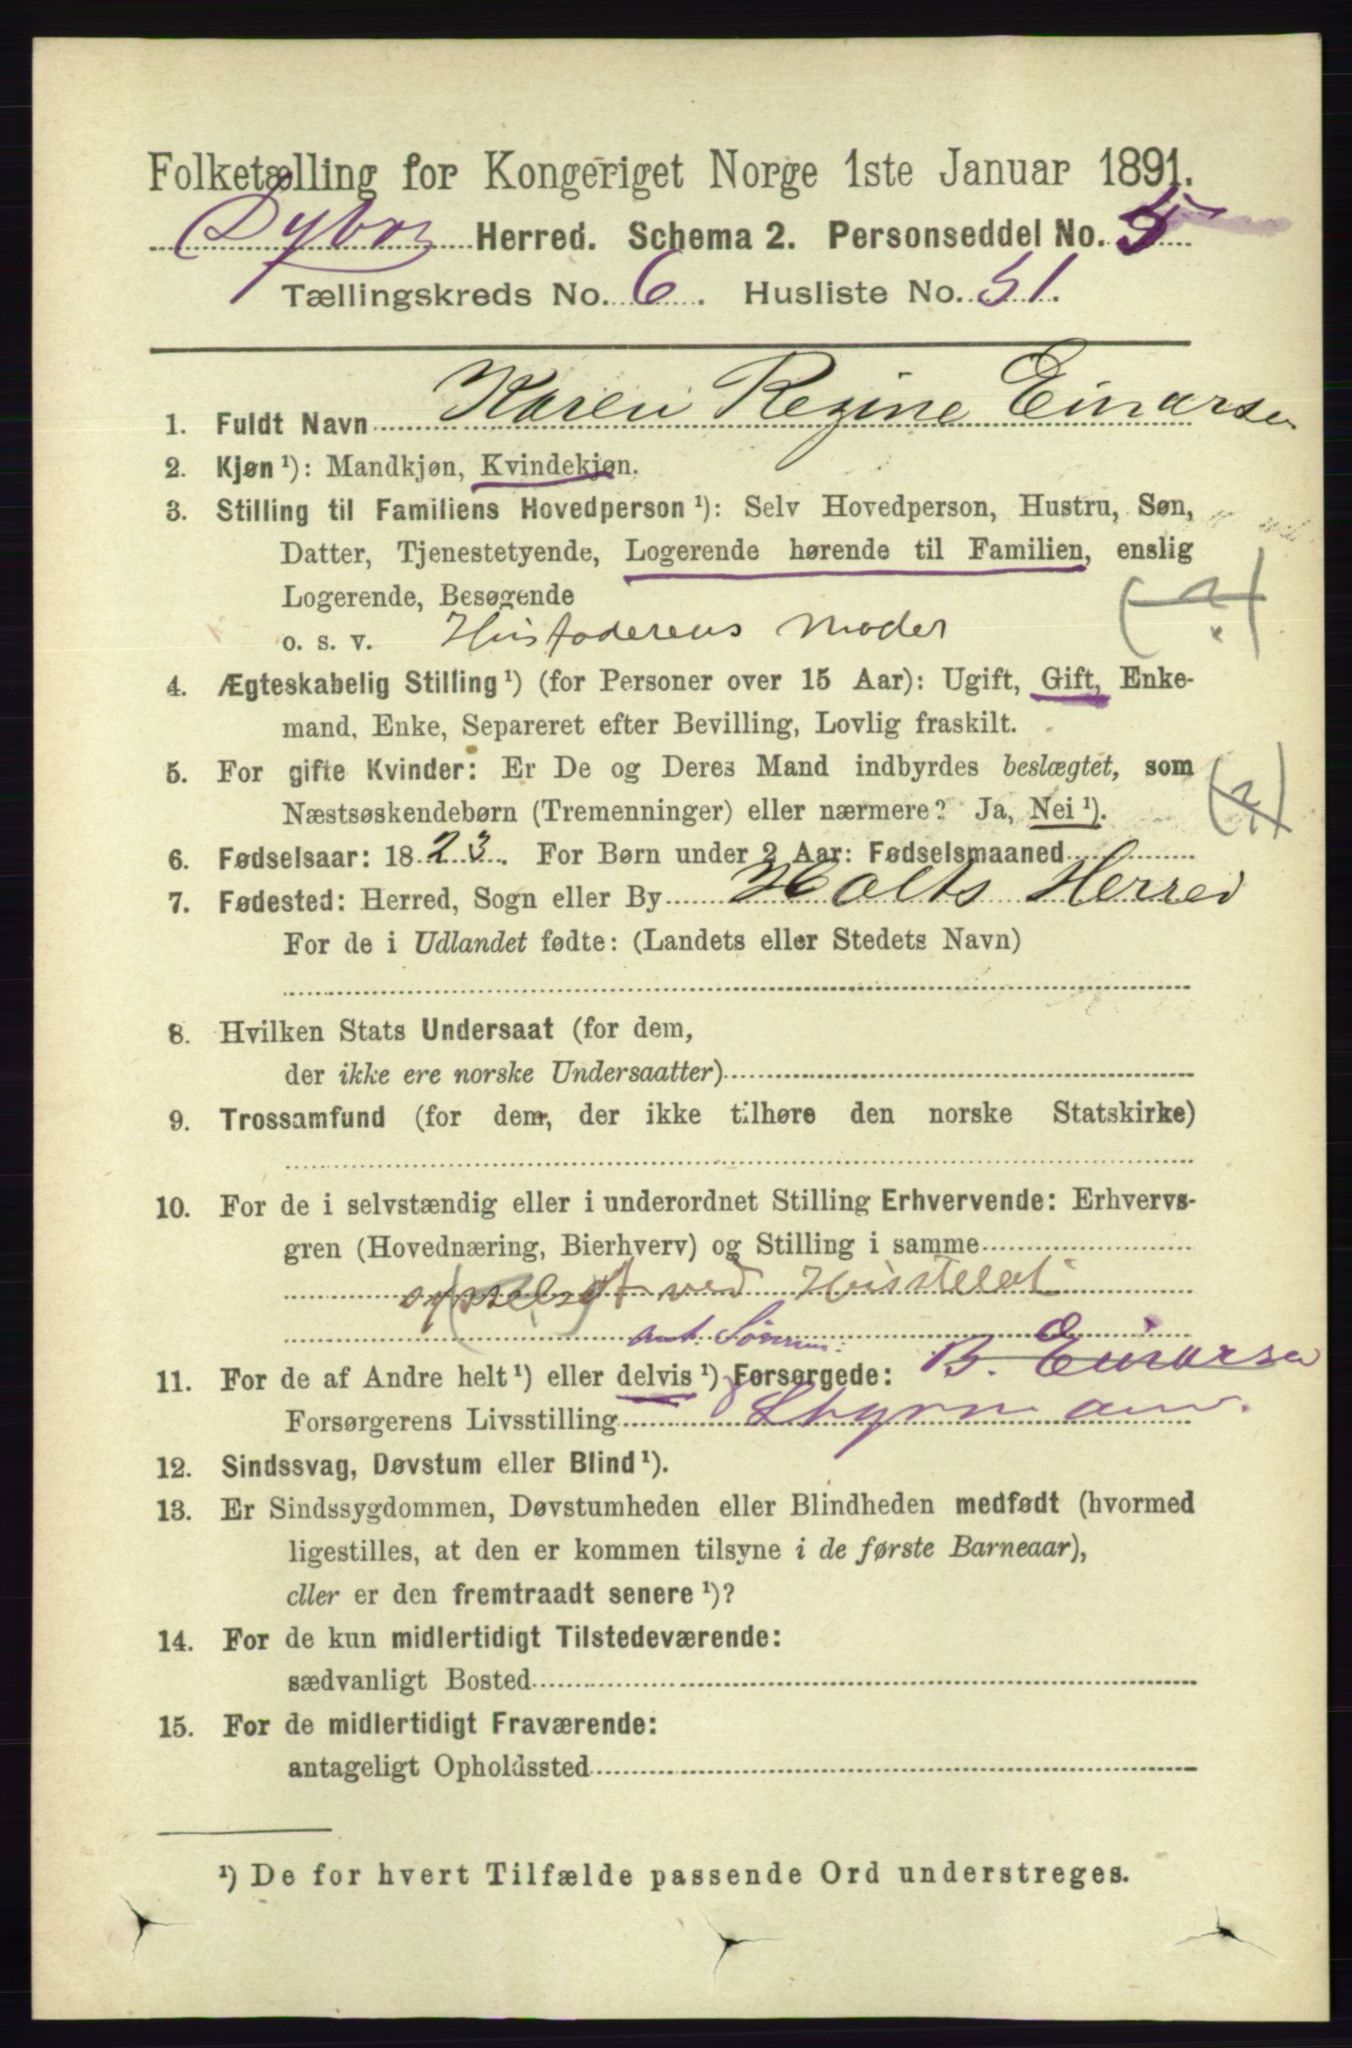 Folketælling for Kongeriget Norge 1ste Januar 1891.
Dybvaag Herred. Schema 2. Personseddel No. 5
Tællingskreds No. 6. Husliste No. 51.
1. Fuldt Navn Karen Regine Einarsen
2. Kjøn ¹): Mandkjøn, Kvindekjøn.
3. Stilling til Familiens Hovedperson ¹): Selv Hovedperson, Hustru, Søn,
Datter, Tjenestetyende, Logerende hørende til Familien, enslig
Logerende, Besøgende
(?)
o. s. v. Husfaderens Moder
4. Ægteskabelig Stilling ¹) (for Personer over 15 Aar): Ugift, Gift, Enke-
mand, Enke, Separeret efter Bevilling, Lovlig fraskilt.
5. For gifte Kvinder: Er De og Deres Mand indbyrdes beslægtet, som
Næstsøskendebørn (Tremenninger) eller nærmere? Ja, Nei ¹).
(?)
6. Fødselsaar: 1823. For Børn under 2 Aar: Fødselsmaaned
7. Fødested: Herred, Sogn eller By Holts Herred
For de i Udlandet fødte: (Landets eller Stedets Navn)
8. Hvilken Stats Undersaat (for dem,
der ikke ere norske Undersaatter)
9. Trossamfund (for dem, der ikke tilhøre den norske Statskirke)
10. For de i selvstændig eller i underordnet Stilling Erhvervende: Erhvervs-
gren (Hovednæring, Bierhverv) og Stilling i samme
sysselsat ved Husstellet
Sønnen:
11. For de af Andre helt ¹) eller delvis ¹) Forsørgede: B. Einarsen
Forsørgerens Livsstilling Styrmand.
12. Sindssvag, Døvstum eller Blind ¹).
13. Er Sindssygdommen, Døvstumheden eller Blindheden medfødt (hvormed
ligestilles, at den er kommen tilsyne i de første Barneaar),
eller er den fremtraadt senere ¹)?
14. For de kun midlertidigt Tilstedeværende:
sædvanligt Bosted
15. For de midlertidigt Fraværende:
antageligt Opholdssted
¹) De for hvert Tilfælde passende Ord understreges.